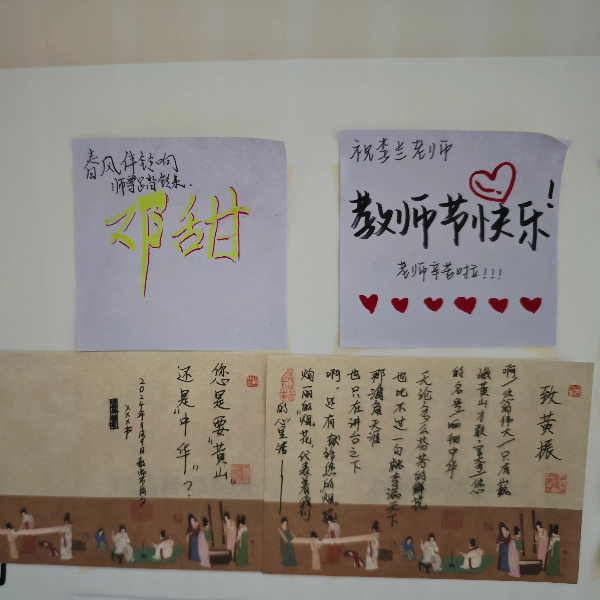 春风伴铃响
师尊踏铃来.
邓甜
祝李兰老师
教师节快乐!
老师辛苦啦!!!
致黄振
啊!您的伟大!只有巍
峨黄山才敢言
的名号!响彻中华
无论多么芬芳的鲜花
也比不过一句桃李满天下
那满屋天涯
也只在讲台之下
啊,还有献给您的烟花
绚丽的烟花,代表着我们
的心里话——
您是要"黄山"
还是"中华"?
2024年9月9日
xxx书